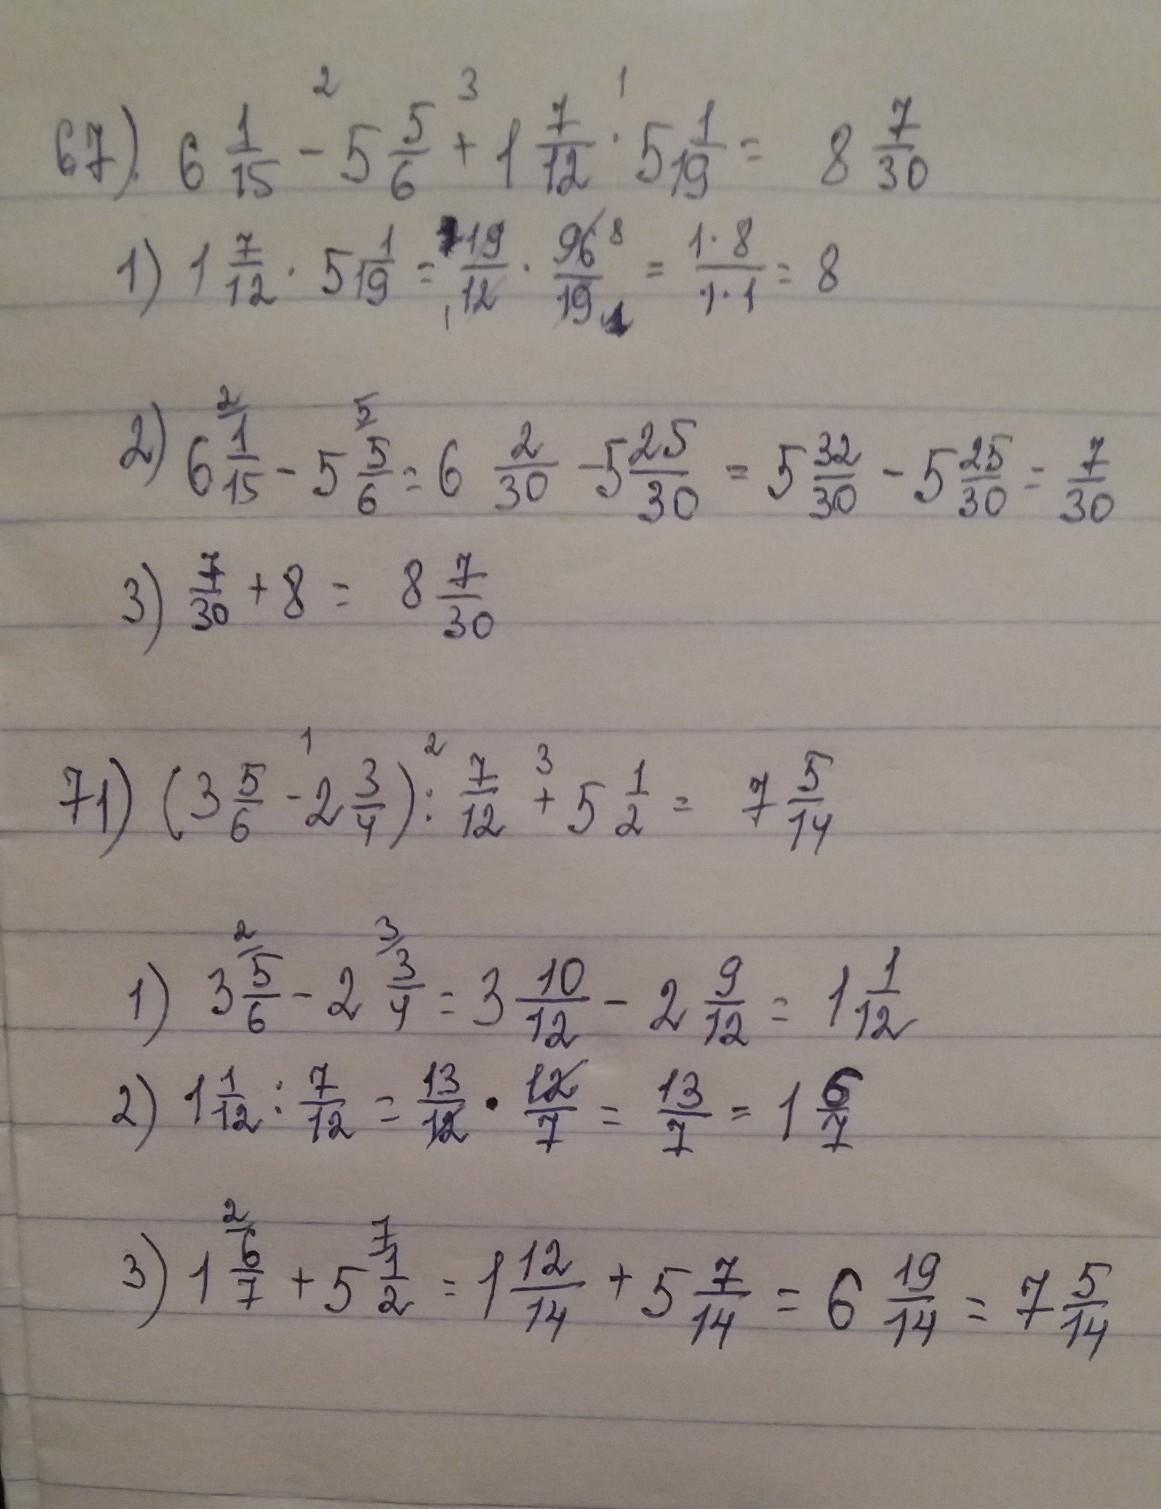 67). 6 1/15 - 5 5/6 + 1 7/12 · 5 1/19 = 8 7/30
1) 1 7/12 · 5 1/19 = 19/12 · 96/19 = 1·8/1·1 = 8
2) 6 1/15 - 5 5/6 = 6 2/30 - 5 25/30 = 5 32/30 - 5 25/30 = 7/30
3) 7/30 + 8 = 8 7/30
71) (3 5/6 - 2 3/4) : 7/12 + 5 1/2 = 7 5/14
1) 3 5/6 - 2 3/4 = 3 10/12 - 2 9/12 = 1 1/12
2) 1 1/12 : 7/12 = 13/12 · 12/7 = 13/7 = 1 6/7
3) 1 6/7 + 5 1/2 = 1 12/14 + 5 7/14 = 6 19/14 = 7 5/14